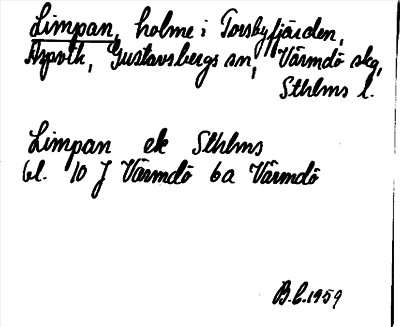 Limpan, holme i Torsbyfjärden,
Aspvik, Gustavsbergs sn, Värmdö skg,
Sthlms l.
Limpan ek Sthlms
bl. 10 J Värmdö 6a Värmdö
B.b.1959